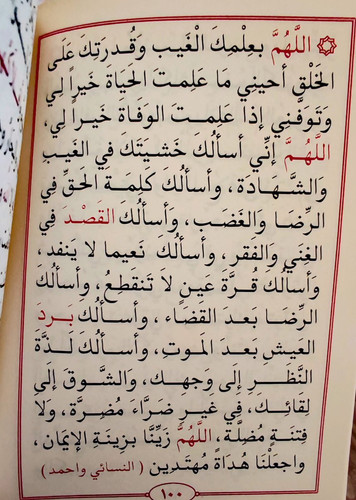 اللَّهُمَّ بِعِلْمِكَ الْغَيبِ وَقُدرَتِكَ عَلَى
الخَلْقِ أحيِني مَا عَلِمتَ الحَيَاةَ خَيراً لِي
وَتَوَفَّنِي إذَا عَلِمتَ الوَفَاةَ خَيراً لِي،
اللَّهُمَّ إنِّي أسألُكَ خَشيَتَكَ فِي الغَيبِ
والشَّهَادَةِ، وَأسألُكَ كَلِمَةَ الحَقِّ في
الرِّضَا وَالغَضَبِ، وَأسألُكَ القَصْدَ فِي
الغِنَى وَالفَقرِ، وَأسألُكَ نَعيما لاَ يَنفَد،
وَأسألُكَ قُرَّةَ عَينٍ لاَ تَنقَطِعُ، وَأسألُكَ
الرِّضَا بَعدَ القَضَاءِ، وَأسألُكَ بَردَ
العَيشِ بَعدَ الموتِ، وَأسألُكَ لَذَّةَ
النَّظَرِ إلَى وَجهِكَ، وَالشَّوقَ إلَى
لِقَائِكَ، فِي غَيرِ ضَرَّاءَ مُضِرَّة، وَلَا
فِتنَةٍ مُضِلَّة، اللَّهُمَّ زَيِّنَّا بزِينَةِ الإيمَانِ،
وَاجعَلْنَا هُدَاةً مُهْتَدين (النسائي واحمد)
١٠٠